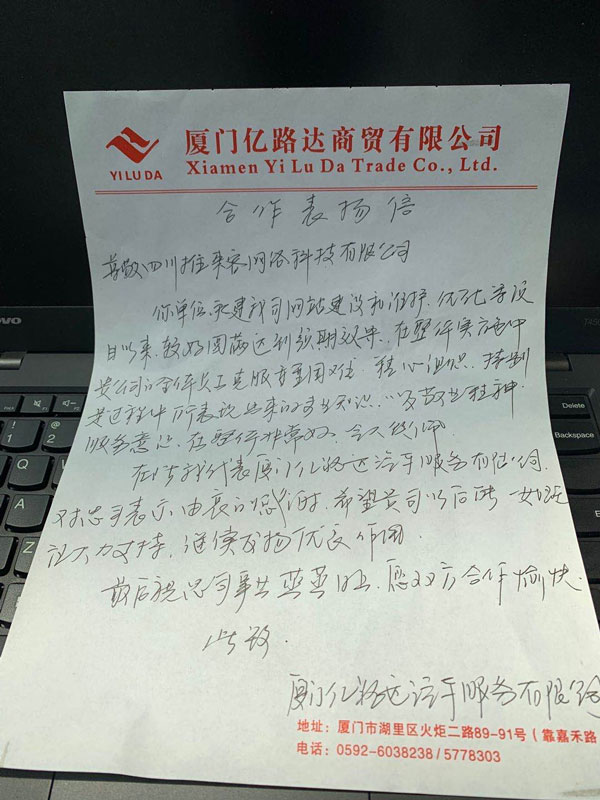 YI LU DA
厦门亿路达商贸有限公司
Xiamen Yi Lu Da Trade Co., Ltd.
合作表扬信
尊敬四川推来客网络科技有限公司
你单位承建我司网站建设和维护、优化等项
目以来,较好圆满达到预期效果,在整个实施中
贵公司的全体员工克服重重困难、精心组织、特别
是过程中所表现出来的专业知识、以及敬业精神、
服务意识,在整行非常好,令人
在此我代表厦门亿路达汽车服务有限公司,
对您司表示由衷的感谢,希望贵司以后能一如既
往大力支持,继续发扬优良作用
最后祝您司事业蒸蒸日上,愿双方合作愉快.
此致.
厦门亿路达汽车服务有限公司
地址:厦门市湖里区火炬二路89-91号(靠嘉禾路
电话:0592-6038238/5778303
Delete
Backspace
Enter
Shift
novo
Q
A
1
2